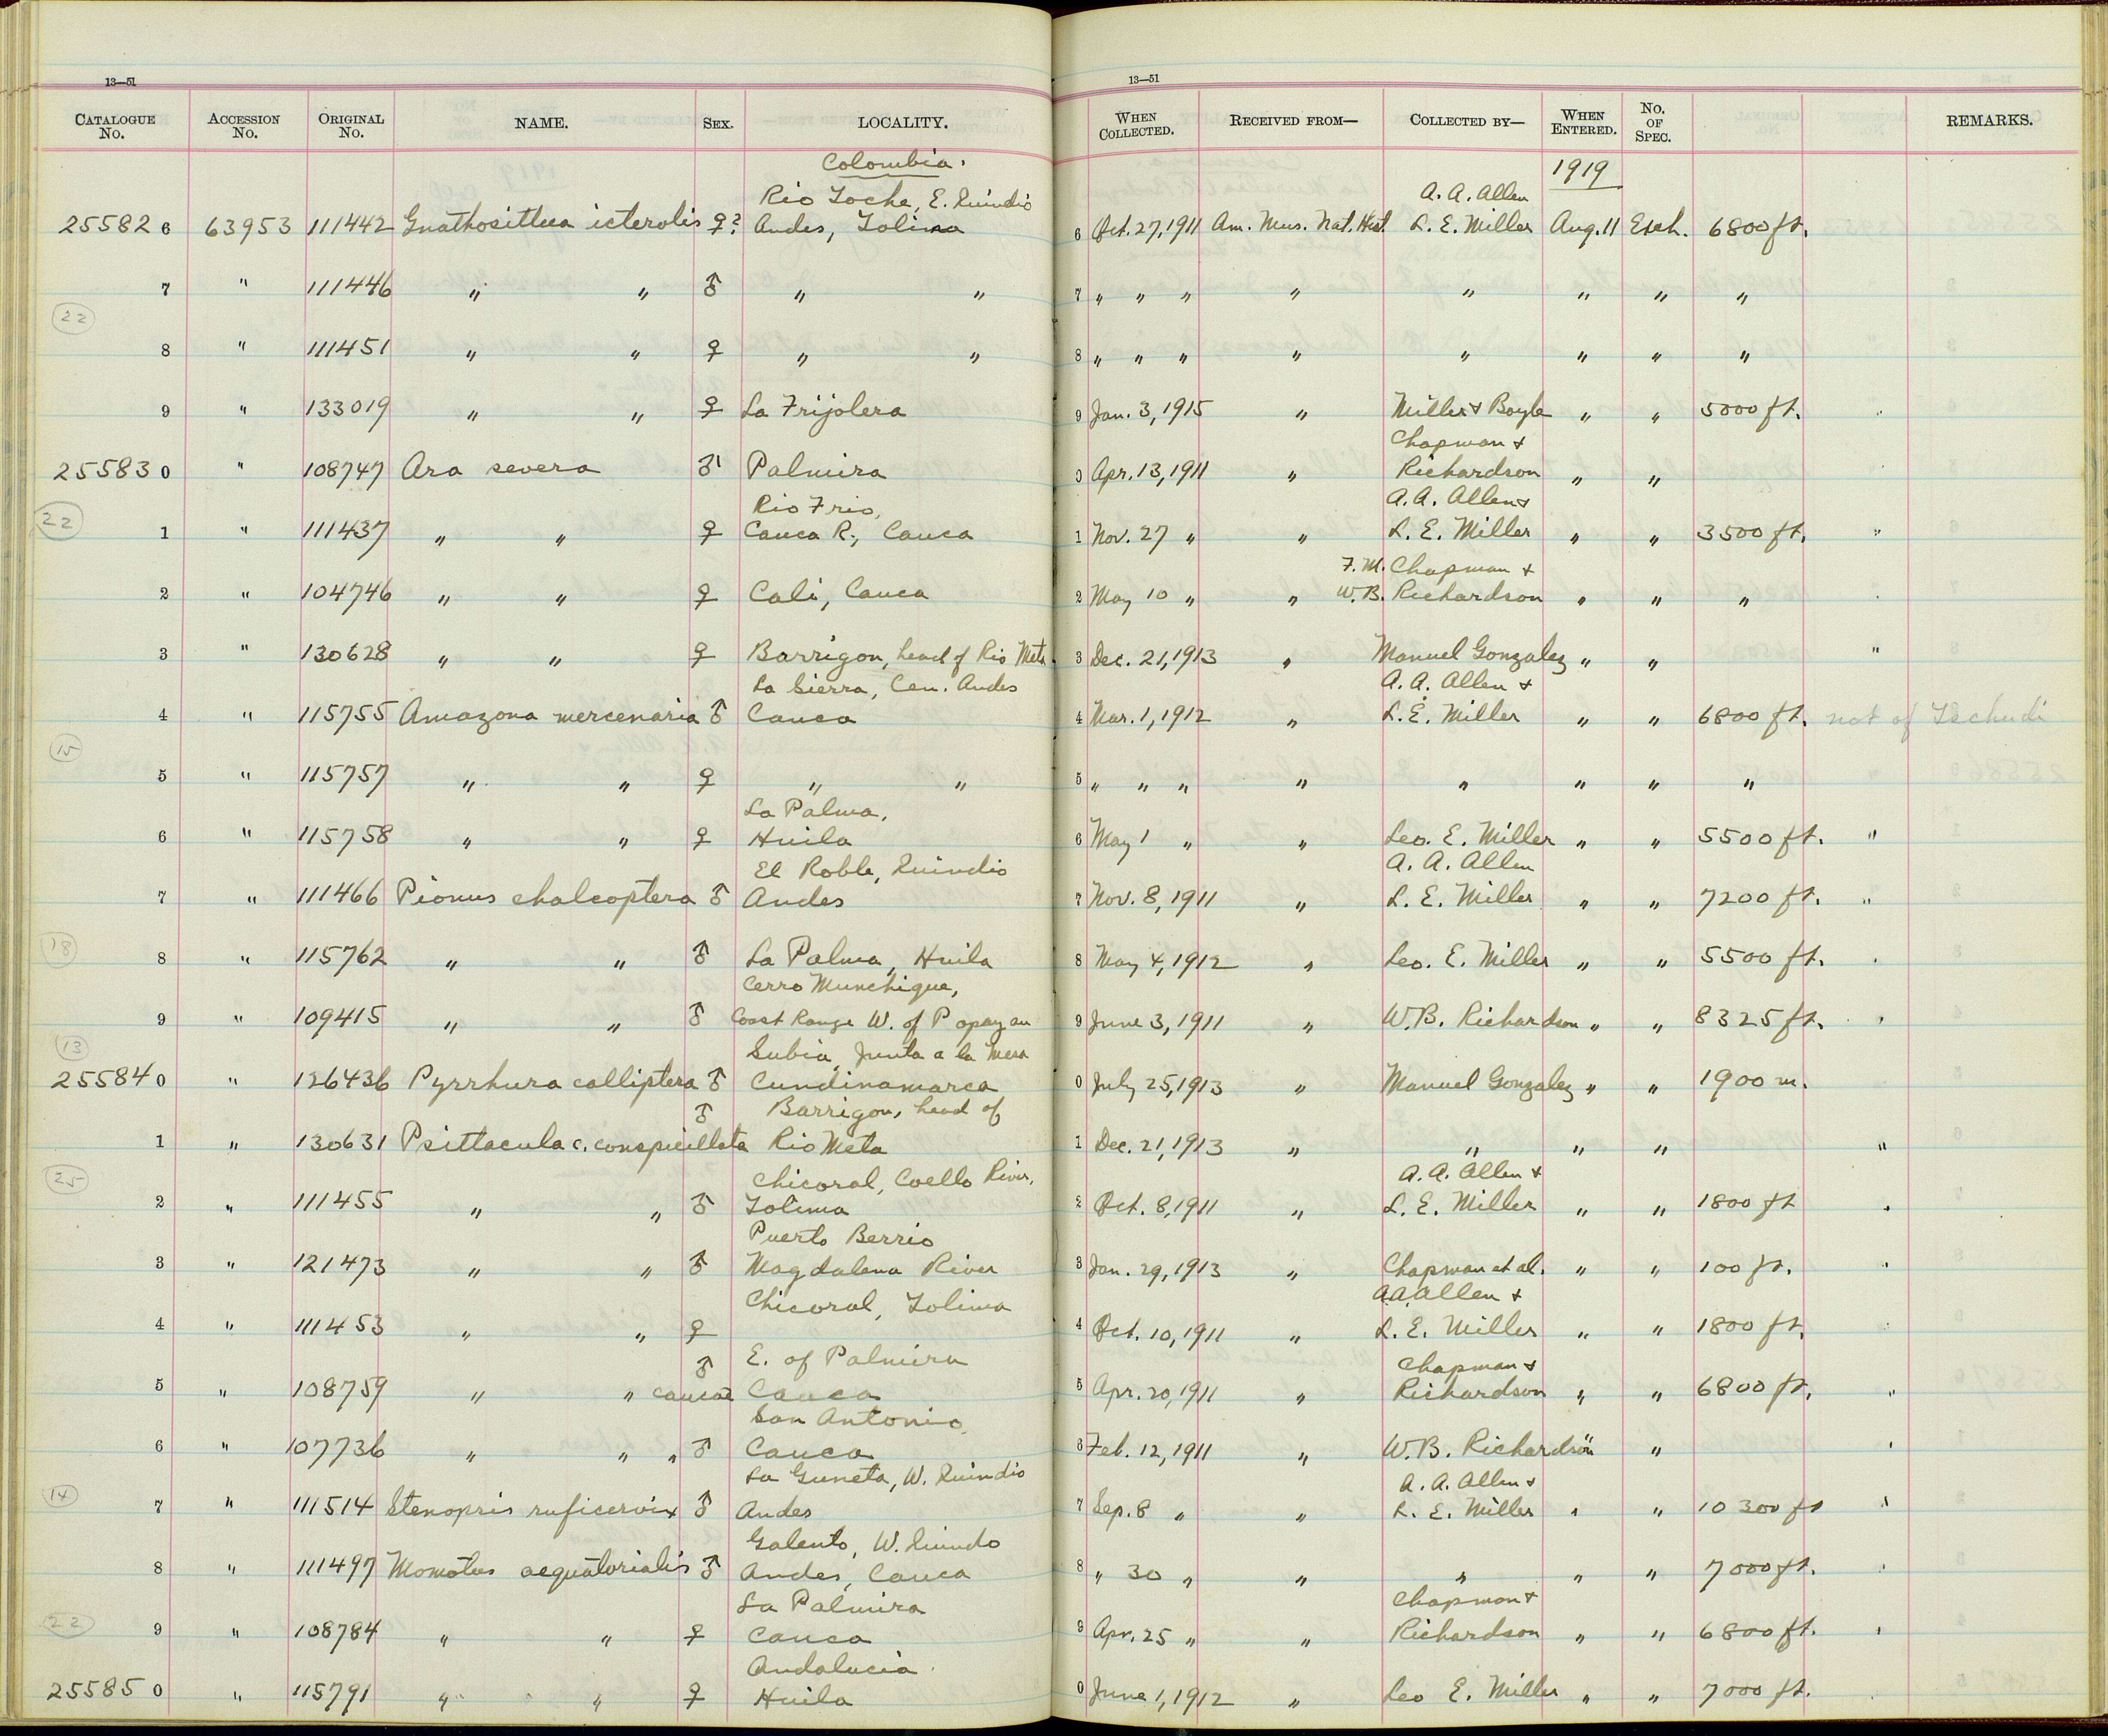 13—51
13—51
CATALOGUE No. ACCESSION No. ORIGINAL No. NAME. SEX. LOCALITY. WHEN COLLECTED. RECEIVED FROM— COLLECTED BY— WHEN ENTERED. No. OF SPEC. REMARKS.
Colombia. 1919
Rio Toche, E. Quindio A. A. Allen
25582 6 63953 111442 Gnathosittaca icterotis ♀? Andes, Tolima 6 Oct. 27, 1911 Am. Mus. Nat. Hist. L. E. Miller Aug. 11 Exch. 6800 ft.
7 " 111446 " " ♂ " " 7 " " " " " " " "
22
8 " 111451 " " ♀ " " 8 " " " " " " " "
9 " 133019 " " ♀ La Frijolera 9 Jan. 3, 1915 " Miller & Boyle " " 5000 ft.
Chapman &
25583 0 " 108747 Ara severa ♂ Palmira 0 Apr. 13, 1911 " Richardson " "
22 Rio Frio, A. A. Allen &
1 " 111437 " " ♀ Cauca R., Cauca 1 Nov. 27 " " L. E. Miller " " 3500 ft. "
F. M. Chapman &
2 " 104746 " " ♀ Cali, Cauca 2 May 10 " " W. B. Richardson " " "
3 " 130628 " " ♀ Barrigon, head of Rio Meta 3 Dec. 21, 1913 " Manuel Gonzalez " " "
La Sierra, Cen. Andes A. A. Allen &
4 " 115755 Amazona mercenaria ♂ Cauca 4 Mar. 1, 1912 " L. E. Miller " " 6800 ft. not of Tschudi
15
5 " 115757 " " ♀ " " 5 " " " " " " " "
La Palma,
6 " 115758 " " ♀ Huila 6 May 1 " " Leo. E. Miller " " 5500 ft. "
El Roble, Quindio A. A. Allen
7 " 111466 Pionus chalcoptera ♂ Andes 7 Nov. 8, 1911 " L. E. Miller " " 7200 ft. "
18
8 " 115762 " " ♂ La Palma, Huila 8 May 4, 1912 " Leo. E. Miller " " 5500 ft.
Cerro Munchique,
9 " 109415 " " ♂ Coast Range W. of Popayan 9 June 3, 1911 " W. B. Richardson " " 8325 ft.
13 Subia, Junta a la Mesa
25584 0 " 126436 Pyrrhura calliptera ♂ Cundinamarca 0 July 25, 1913 " Manuel Gonzalez " " 1900 m.
♂ Barrigon, head of
1 " 130631 Psittacula c. conspicillata Rio Meta 1 Dec. 21, 1913 " " " " "
25 Chicoral, Coello River, A. A. Allen &
2 " 111455 " " ♂ Tolima 2 Oct. 8, 1911 " L. E. Miller " " 1800 ft
Puerto Berrio
3 " 121473 " " ♂ Magdalena River 3 Jan. 29, 1913 " Chapman et al. " " 100 ft. "
Chicoral, Tolima A. A. Allen &
4 " 111453 " " ♀ 4 Oct. 10, 1911 " L. E. Miller " " 1800 ft.
♂ E. of Palmira Chapman &
5 " 108759 " " caucae Cauca 5 Apr. 20, 1911 " Richardson " " 6800 ft. "
San Antonio,
6 " 107736 " " " ♂ Cauca 6 Feb. 12, 1911 " W. B. Richardson " "
La Guneta, W. Quindio A. A. Allen &
14
7 " 111514 Stenopsis ruficervix ♂ Andes 7 Sep. 8 " " L. E. Miller " " 10300 ft "
Salento, W. Quindo
8 " 111497 Momotus aequatorialis ♂ Andes, Cauca 8 " 30 " " " " " 7000 ft.
22 La Palmira Chapman &
9 " 108784 " " ♀ Cauca 9 Apr. 25 " " Richardson " " 6800 ft.
Andalucia
25585 0 " 115791 " " ♀ Huila 0 June 1, 1912 " Leo E. Miller " " 7000 ft.